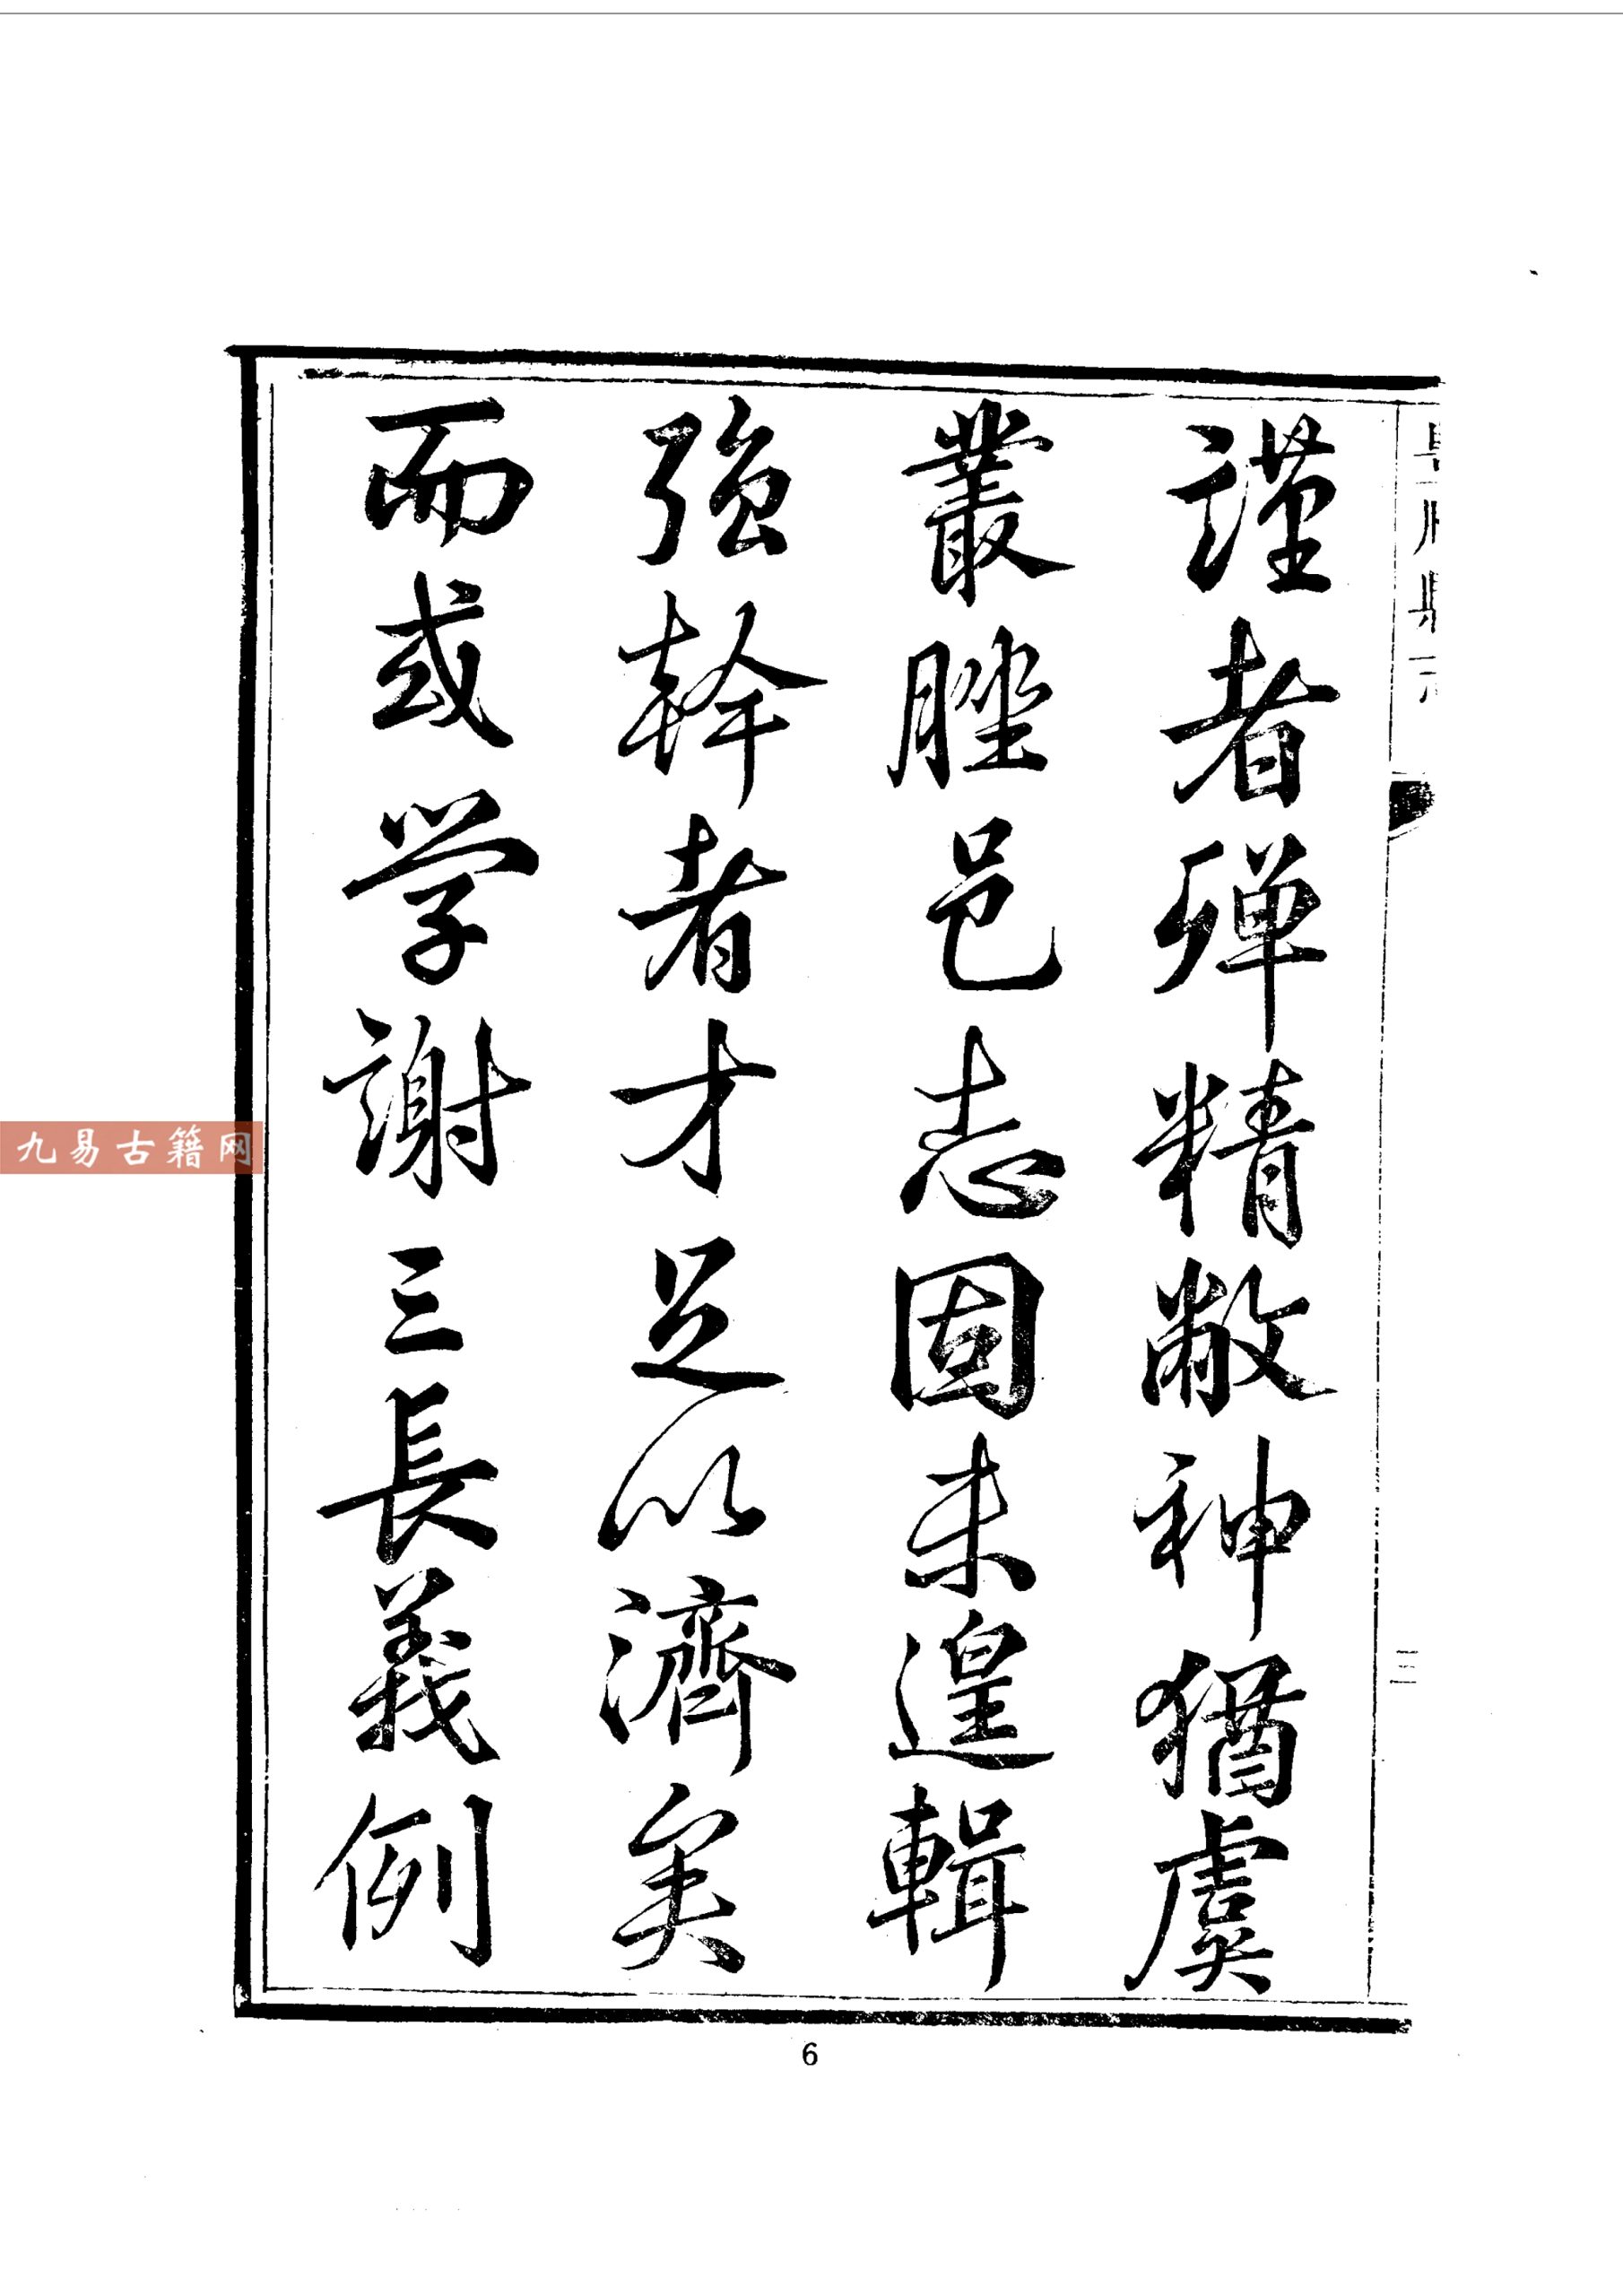 謹者殫精敝神猶虞
叢脞邑志固未遑輯
強幹者才足以濟矣
而或学謝三長義例
三
6
九易古籍网